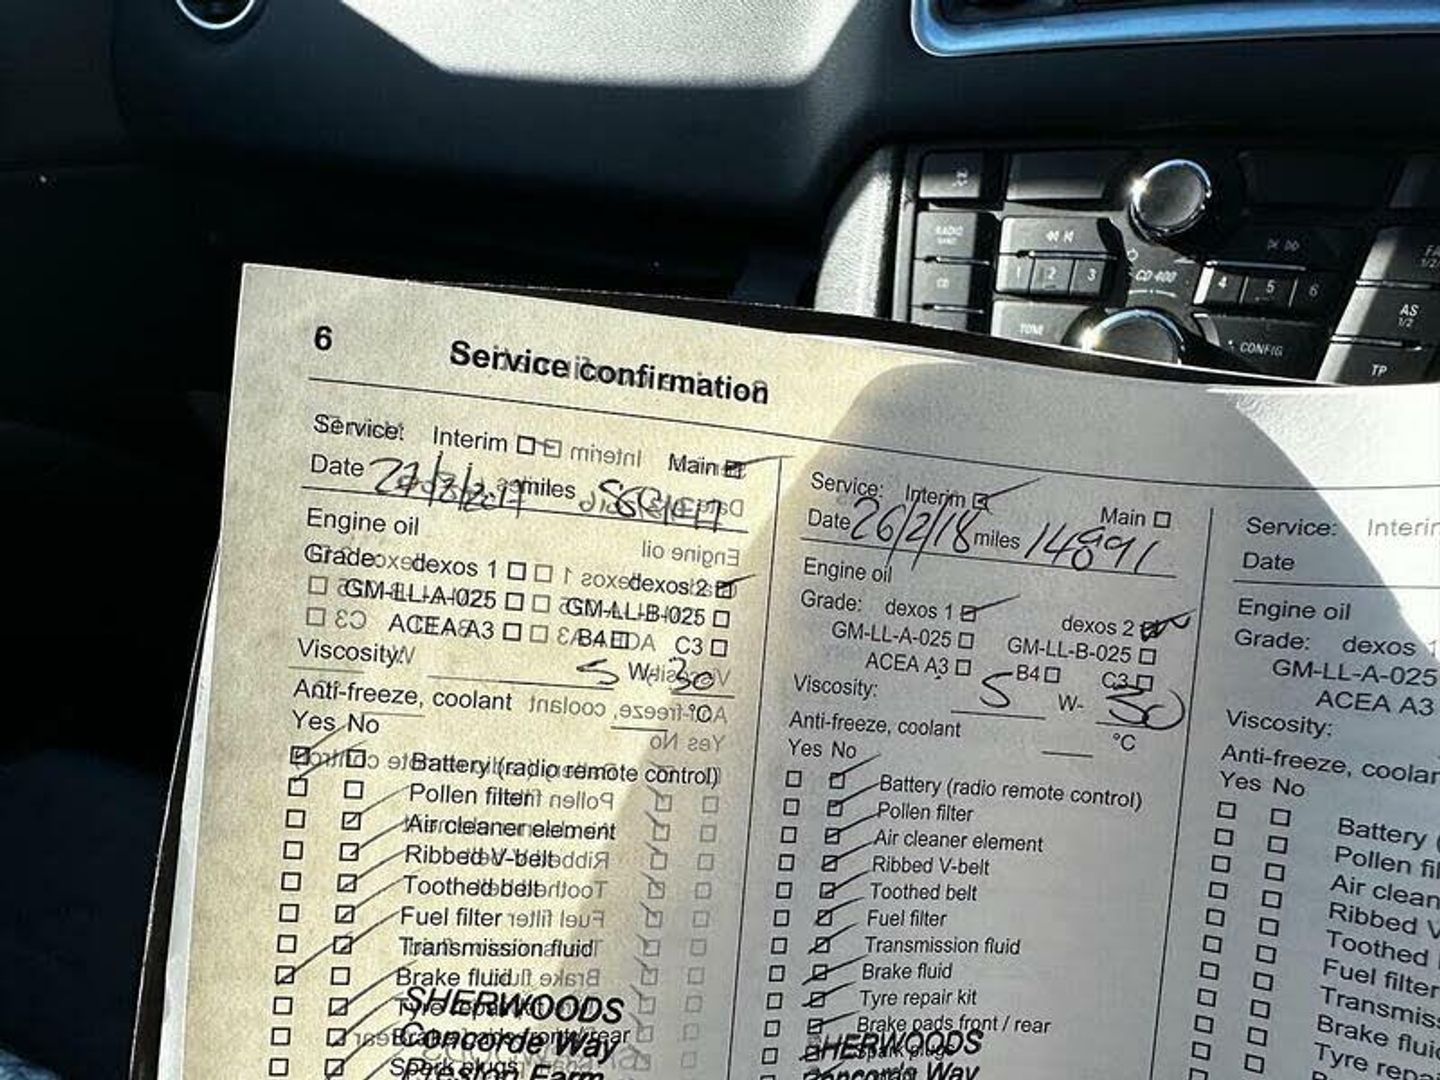 RADIO
CD
1 2 3
CD 400
4 5 6
TONE
CONFIG
AS
1/2
TP
6
Service confirmation
Service: Interim Main
Date miles
Engine oil
Grade: dexos 1 dexos 2
GM-LL-A-025 GM-LL-B-025
ACEA A3 B4 C3
Viscosity: 5 W- 30
Anti-freeze, coolant °C
Yes No
Battery (radio remote control)
Pollen filter
Air cleaner element
Ribbed V-belt
Toothed belt
Fuel filter
Transmission fluid
Brake fluid
Tyre repair kit
Brake pads front / rear
Spark plugs
SHERWOODS
Concorde Way
Preston Farm
Service: Interim Main
Date 26/2/18 miles 14891
Engine oil
Grade: dexos 1 dexos 2
GM-LL-A-025 GM-LL-B-025
ACEA A3 B4 C3
Viscosity: 5 W- 30
Anti-freeze, coolant °C
Yes No
Battery (radio remote control)
Pollen filter
Air cleaner element
Ribbed V-belt
Toothed belt
Fuel filter
Transmission fluid
Brake fluid
Tyre repair kit
Brake pads front / rear
Spark plugs
SHERWOODS
Concorde Way
Service: Interim
Date
Engine oil
Grade: dexos 1
GM-LL-A-025
ACEA A3
Viscosity:
Anti-freeze, coolan
Yes No
Battery (
Pollen fil
Air clean
Ribbed V
Toothed
Fuel filter
Transmis
Brake flui
Tyre repa